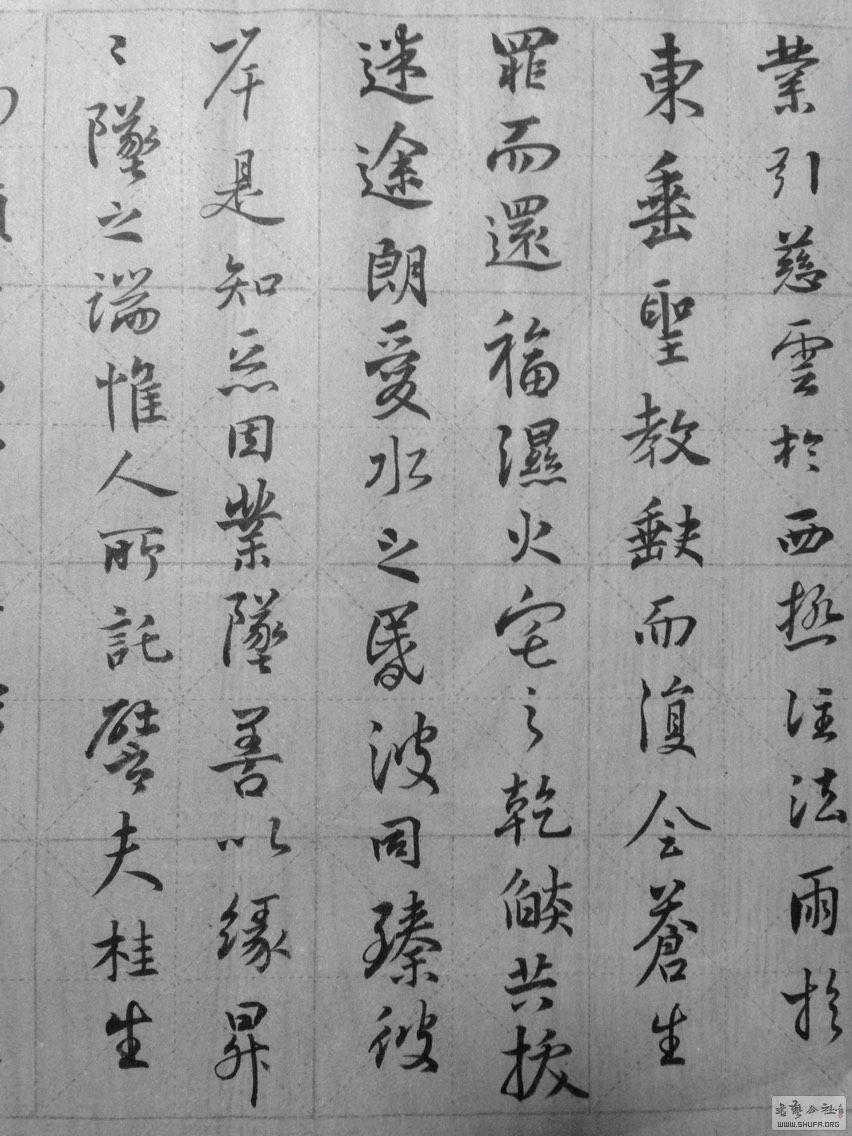 業引慈雲於西極注法雨於
東垂聖教缺而復全蒼生
罪而還福濕火宅之乾燄共拔
迷途朗愛水之昏波同臻彼
岸是知惡因業墜善以緣昇
〻墜之端惟人所託譬夫桂生
WWW.SHUFA.ORG